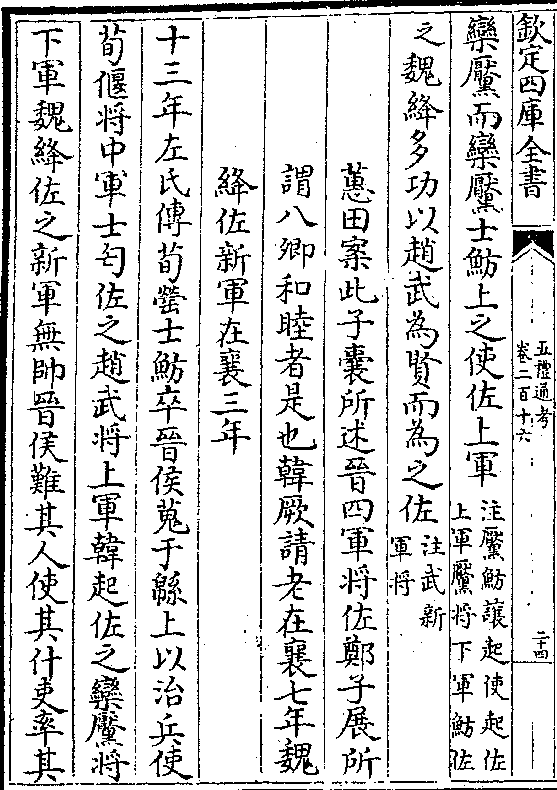 欽定四庫全書
五禮通考
卷二百十六
二十四
欒黶而欒黶士魴上之使佐上軍
注黶魴讓起使起佐
上軍黶將下軍魴佐
之魏絳多功以趙武為賢而為之佐
注武新
軍將
蕙田案此子囊所述晉四軍將佐鄭子展所
謂八卿和睦者是也韓厥請老在襄七年魏
絳佐新軍在襄三年
十三年左氏傳荀罃士魴卒晉侯蒐于緜上以治兵使
荀偃將中軍士匄佐之趙武將上軍韓起佐之欒黶將
下軍魏絳佐之新軍無帥晉侯難其人使其什吏率其